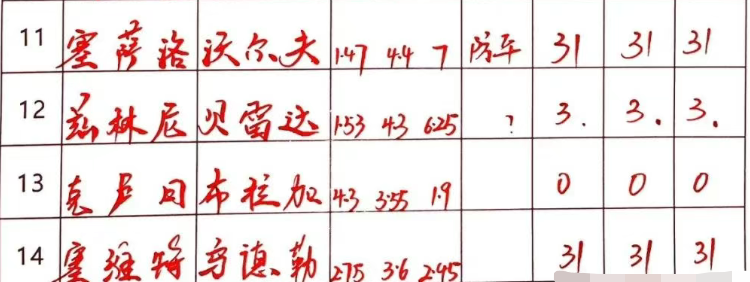 11 塞萨洛 沃尔夫 1.47 4.4 7 防平 31 31 31
12 兹林尼 贝雷达 1.53 4.3 6.25 ? 3. 3. 3.
13 克卢日 布拉加 4.3 3.55 1.9 0 0 0
14 塞维特 乌德勒 2.75 3.6 2.45 31 31 31